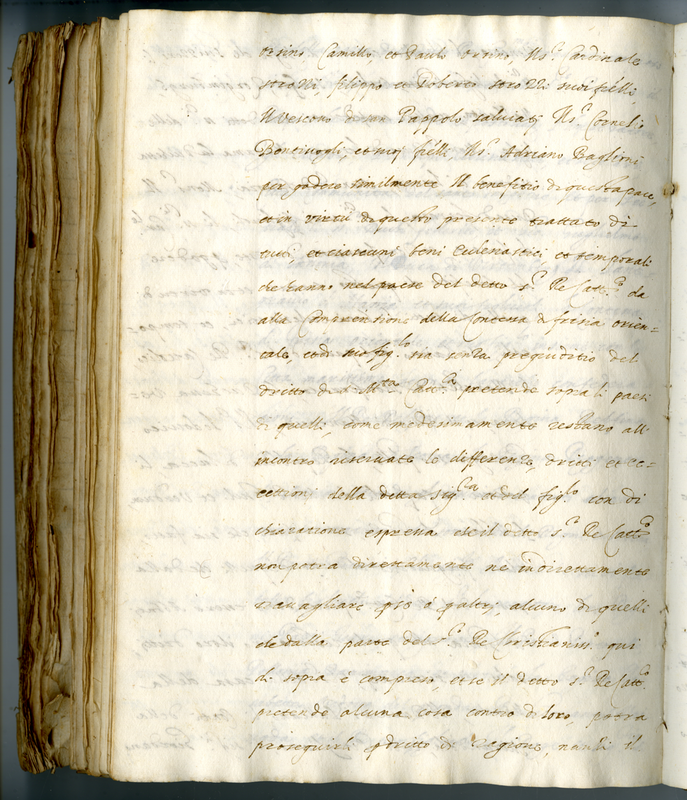 Orsino, Camillo, et Paulo Orsino, Ms.r Cardinale
strozzi, filippo et Roberto strozzi suoi frelli,
Il Vescovo di san Pappolo salviati Ms.r Cornelio
Bentivogli, et suoi frelli, Ms.r Adriano Baglioni
per godere similmente il benefitio di questa pace,
et in virtù di questo presente trattato di
tutti, et ciascuni beni Eclesiastici et temporali
che hanno nel paese del detto s.r Re Catt.co da
alla Comprensione della Contessa di frisia orien=
tale, et di suo fig.lo sia senza pregiuditio del
dritto che s. M.tà Catt.ca pretende sopra li paesi
di quelli, come medesimamente restano all'
incontro riservate le differenze, dritti et ec=
cettioni della detta sig.ra et del fig.lo con di
chiaratione espressa che il detto s.r Re Catt.co
non potrà direttamente ne indirettamente
travagliare p se o p altri, alcuno di quelli
che dalla parte del s.r Re Christianiss.o qui
di sopra è compreso, et se il detto s.r Re Catt.co
pretende alcuna cosa contro di loro, potrà
proseguirli p dritto di ragione, nanti il